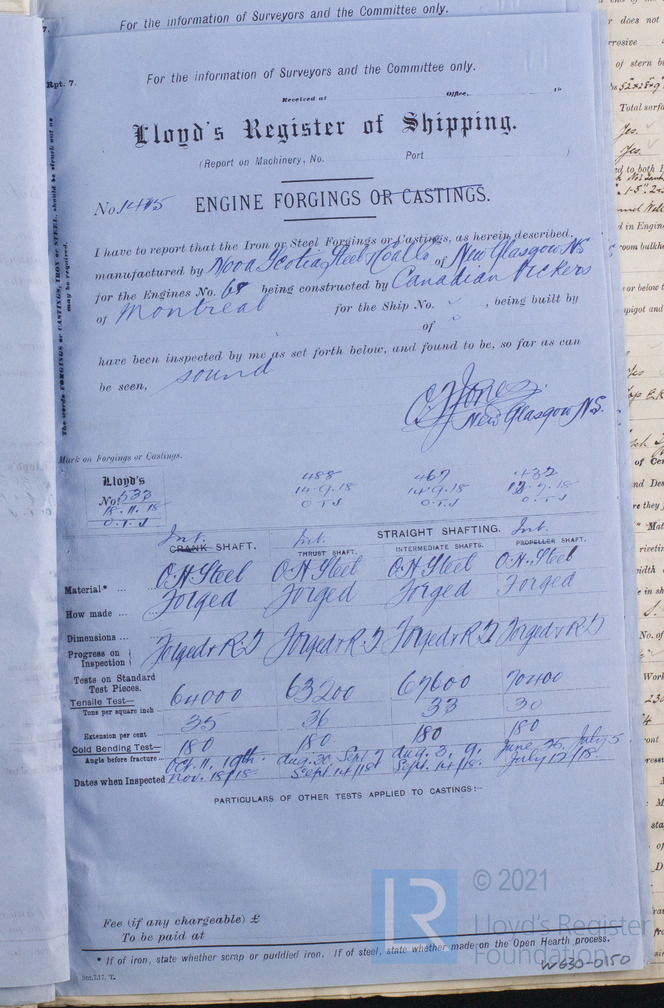 For the information of Surveyors and the Committee only.
7.
Rpt. 7.
For the information of Surveyors and the Committee only.
Received at Office, 19
Lloyd's Register of Shipping.
(Report on Machinery, No. Port )
No. 1415 ENGINE FORGINGS OR CASTINGS.
The words FORGINGS or CASTINGS, IRON or STEEL, should be struck out as may be required.
I have to report that the Iron or Steel Forgings or Castings, as herein described,
manufactured by Nova Scotia Steel & Coal Co of New Glasgow NS
for the Engines No. 68 being constructed by Canadian Vickers
of Montreal for the Ship No. , being built by
of
have been inspected by me as set forth below, and found to be, so far as can
be seen, sound
New Glasgow NS.
Mark on Forgings or Castings.
Lloyd's 488 467 432
No. 533 14.9.18 14.9.18 12.7.18
18.11.18 O.T.J O.T.J O.T.J
O.T.J
Int. Int. STRAIGHT SHAFTING. Int.
CRANK SHAFT. THRUST SHAFT. INTERMEDIATE SHAFTS. PROPELLER SHAFT.
Material* ... O.H. Steel O.H. Steel O.H. Steel O.H. Steel
How made ... Forged Forged Forged Forged
Dimensions ...
Progress on Inspection } Forged & R.T Forged & R.T Forged & R.T Forged & R.T
Tests on Standard Test Pieces.
Tensile Test— 64000 63200 67600 70400
Tons per square inch
Extension per cent 35 36 33 30
Cold Bending Test— 180 180 180 180
Angle before fracture
Dates when Inspected Oct. 11, 19th. Nov. 18/18 Aug. 30, Sept 7 Sept 14/18 Aug. 3, 9, Sept. 14/18. June 26, July 5 July 12/18.
PARTICULARS OF OTHER TESTS APPLIED TO CASTINGS:—
Fee (if any chargeable) £
To be paid at
* If of iron, state whether scrap or puddled iron. If of steel, state whether made on the Open Hearth process.
5m.7,17. T.
LR
© 2021
Lloyd's Register
Foundation
W630-0150